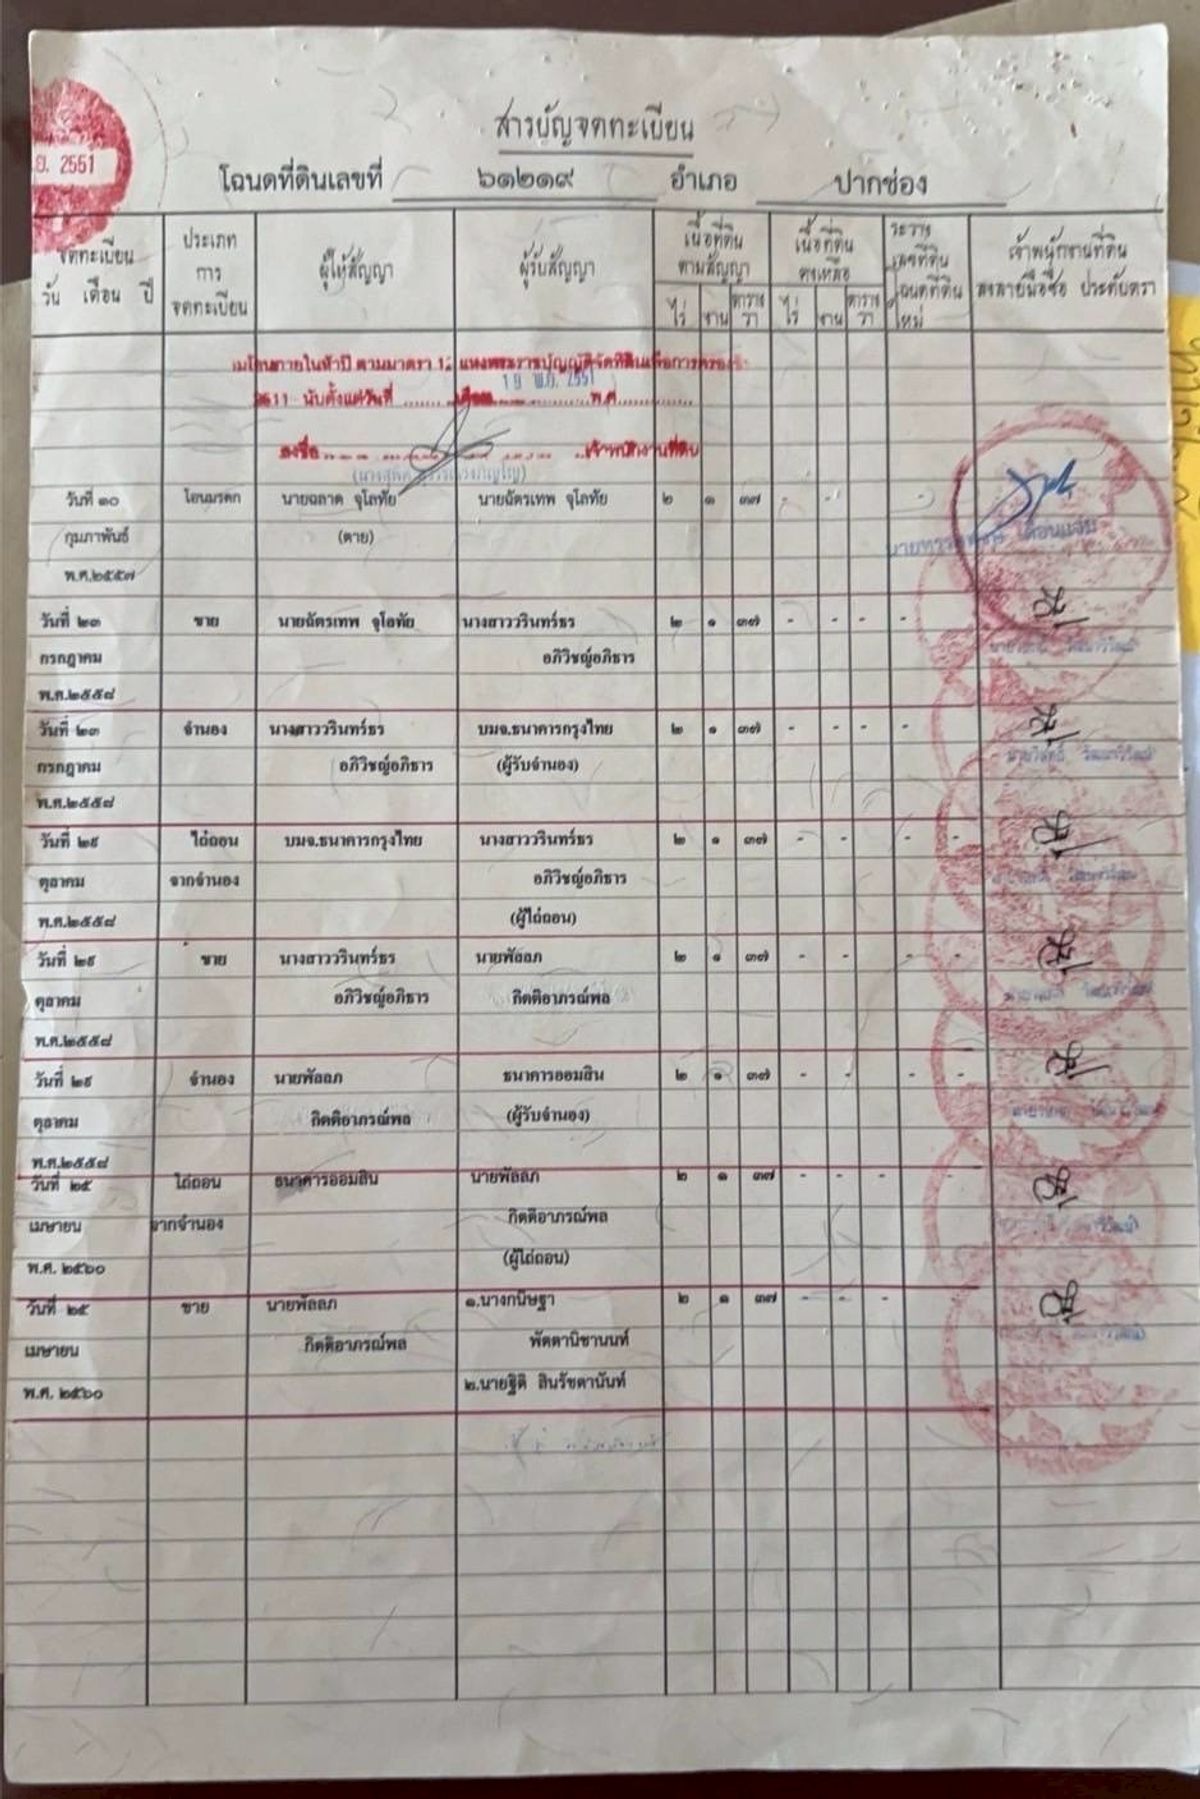 สารบัญจดทะเบียน
โฉนดที่ดินเลขที่ ๖๑๒๑๙ อำเภอ ปากช่อง
ย. 2551
จดทะเบียน
วัน เดือน ปี
ประเภท
การ
จดทะเบียน
ผู้ให้สัญญา
ผู้รับสัญญา
เนื้อที่ดิน
ตามสัญญา
ไร่ งาน ตาราง
วา
เนื้อที่ดิน
คงเหลือ
ไร่ งาน ตาราง
วา
ระวาง
เลขที่ดิน
โฉนดที่ดิน
ใหม่
เจ้าพนักงานที่ดิน
ลงลายมือชื่อ ประทับตรา
ตามมาตรา 12 แห่งพระราชบัญญัติจัดที่ดินเพื่อการครองชีพ
2511 นับตั้งแต่วันที่ 19 พ.ย. 2551 เดือน พ.ศ.
ลงชื่อ เจ้าพนักงานที่ดิน
วันที่ ๑๐ โอนมรดก นายฉลาด จุโลทัย นายฉัตรเทพ จุโลทัย ๒ ๑ ๓๗ - - -
กุมภาพันธ์ (ตาย) เดือนแจ่ม
พ.ศ.๒๕๕๗
วันที่ ๒๓ ขาย นายฉัตรเทพ จุโลทัย นางสาววรินทร์ธร ๒ ๑ ๓๗ - - - -
กรกฎาคม อภิวิชญ์อภิธาร
พ.ศ.๒๕๕๘
วันที่ ๒๓ จำนอง นางสาววรินทร์ธร บมจ.ธนาคารกรุงไทย ๒ ๑ ๓๗ - - - -
กรกฎาคม อภิวิชญ์อภิธาร (ผู้รับจำนอง)
พ.ศ.๒๕๕๘
วันที่ ๒๙ ไถ่ถอน บมจ.ธนาคารกรุงไทย นางสาววรินทร์ธร ๒ ๑ ๓๗ - - - -
ตุลาคม จากจำนอง อภิวิชญ์อภิธาร
พ.ศ.๒๕๕๘ (ผู้ไถ่ถอน)
วันที่ ๒๙ ขาย นางสาววรินทร์ธร นายพัลลภ ๒ ๑ ๓๗ - - - -
ตุลาคม อภิวิชญ์อภิธาร กิตติอาภรณ์พล
พ.ศ.๒๕๕๘
วันที่ ๒๙ จำนอง นายพัลลภ ธนาคารออมสิน ๒ ๑ ๓๗ - - - -
ตุลาคม กิตติอาภรณ์พล (ผู้รับจำนอง)
พ.ศ.๒๕๕๘
วันที่ ๒๕ ไถ่ถอน ธนาคารออมสิน นายพัลลภ ๒ ๑ ๓๗ - - - -
เมษายน จากจำนอง กิตติอาภรณ์พล
พ.ศ. ๒๕๖๐ (ผู้ไถ่ถอน)
วันที่ ๒๕ ขาย นายพัลลภ ๑.นางกนิษฐา ๒ ๑ ๓๗ - - -
เมษายน กิตติอาภรณ์พล พัตตานิชานนท์
พ.ศ. ๒๕๖๐ ๒.นายฐิติ สินรัชตานันท์